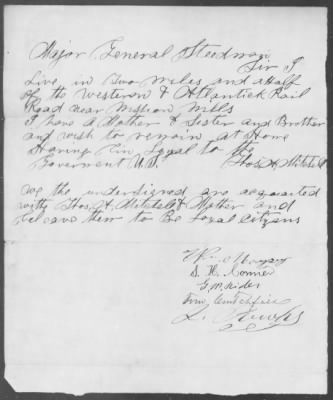 Major General Steedman
Sir I
Live in two miles and a half
of the Western & Atlantick Rail
Road near Mission Mills
I have a Mother & Sister and Brother
and wish to remain at Home
Having bin Loyal to the
Goverment U.S. Thos. H. Mitchell
we the undersigned are acquainted
with Thos. H. Mitchell & Mother and
beleave them to Be Loyal Citizens
Wm
S. H. Conner
G. M. Rider
L.